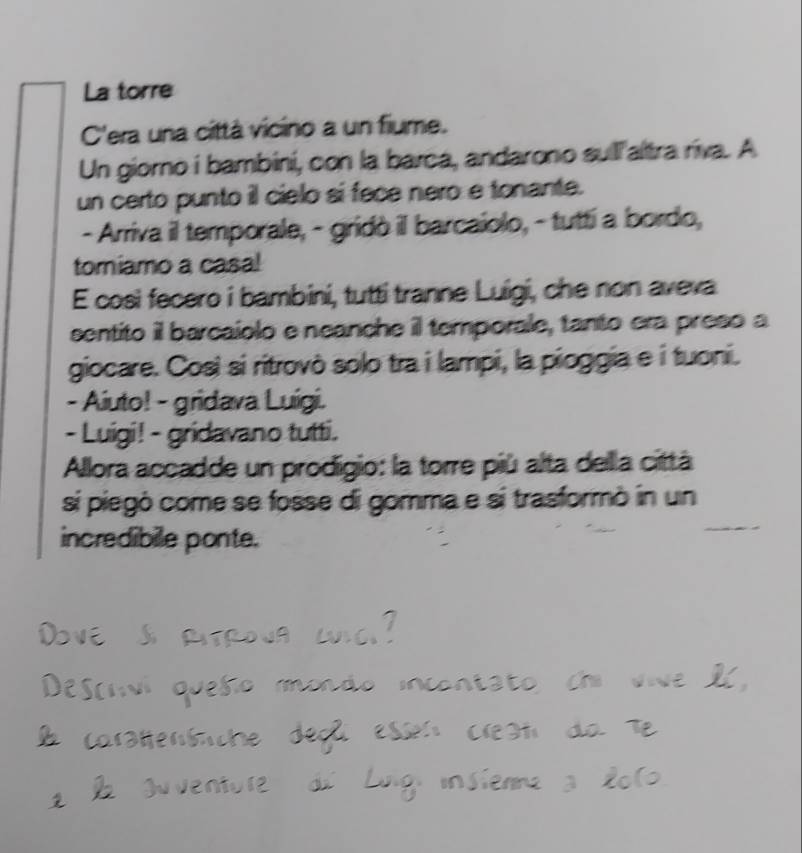 La torre
C'era una città vicino a un fiume.
Un giorno i bambini, con la barca, andarono sull'altra riva. A
un certo punto il cielo si fece nero e tonante.
- Arriva il temporale, - gridò il barcaiolo, - tutti a bordo,
torniamo a casa!
E così fecero i bambini, tutti tranne Luigi, che non aveva
sentito il barcaiolo e neanche il temporale, tanto era preso a
giocare. Così si ritrovò solo tra i lampi, la pioggia e i tuoni.
- Aiuto! - gridava Luigi.
- Luigi! - gridavano tutti.
Allora accadde un prodigio: la torre più alta della città
si piegò come se fosse di gomma e si trasformò in un
incredibile ponte.
DOVE Si RITROVA LUIGI?
Descrivi questo mondo incantato chi vive lí,
le caratteristiche degli esseri creati da te
e le avventure di Luigi insieme a loro